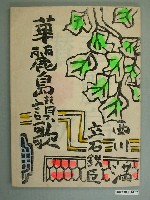 華麗島頌歌
西川滿
立石鉄臣